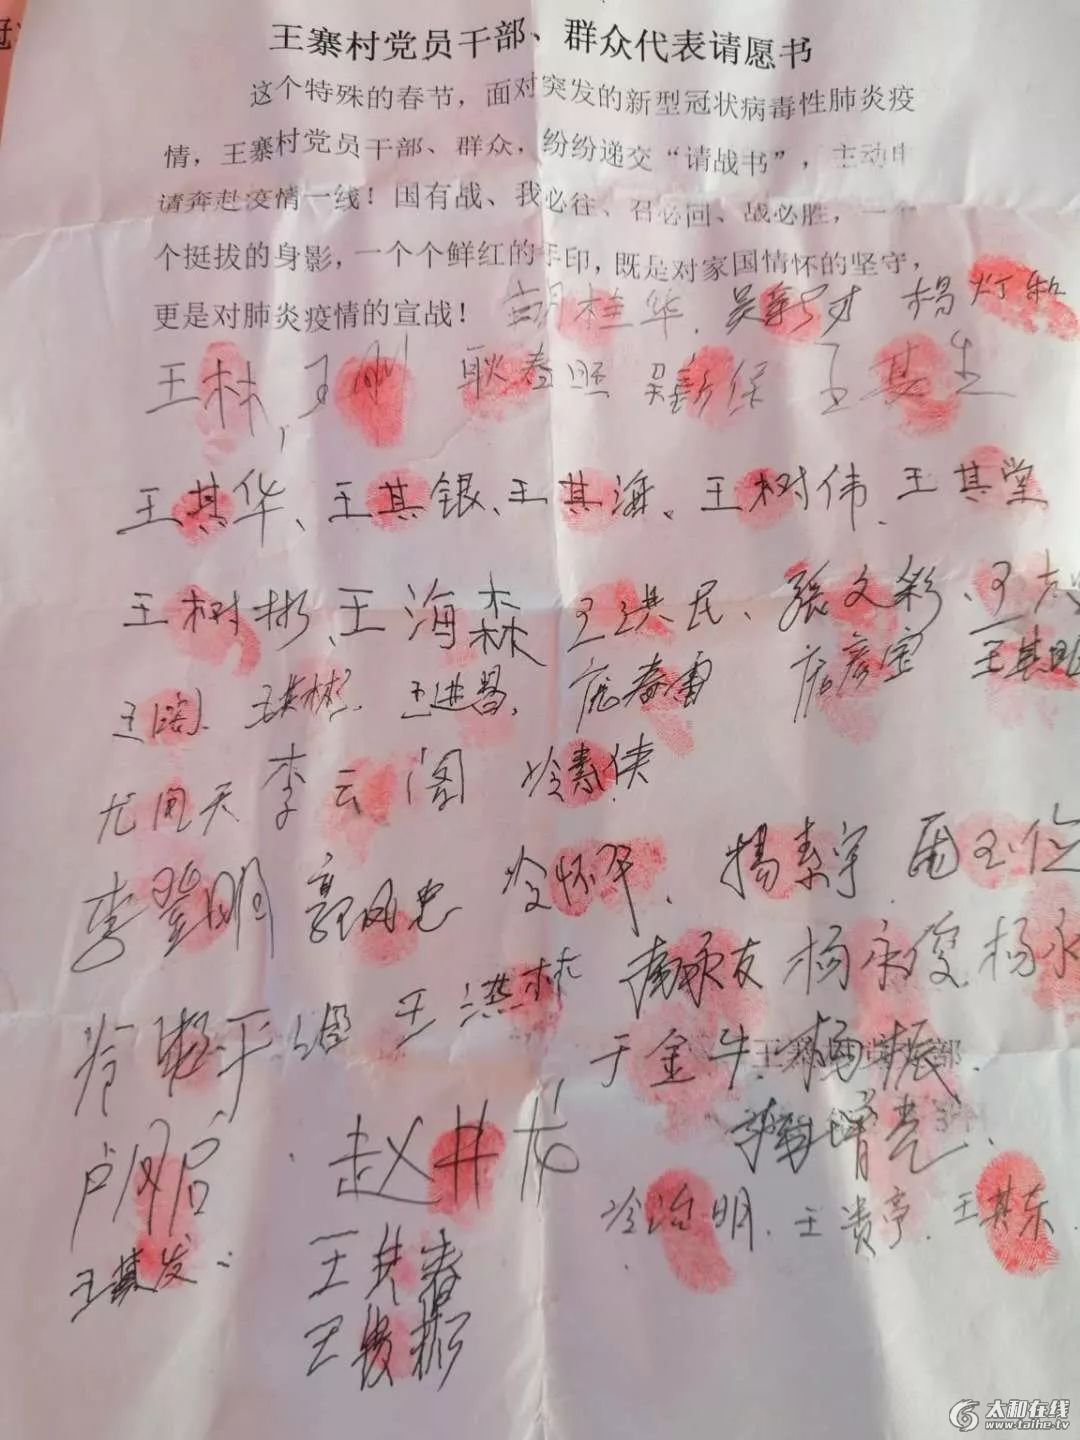 王寨村党员干部、群众代表请愿书
这个特殊的春节，面对突发的新型冠状病毒性肺炎疫
情，王寨村党员干部、群众，纷纷递交“请战书”，主动申
请奔赴疫情一线！国有战、我必往、召必回、战必胜，一个
个挺拔的身影，一个个鲜红的手印，既是对家国情怀的坚守，
更是对肺炎疫情的宣战！
胡桂华、吴新才 杨灯和
王林、王 耿春 王其生
王其华、王其银、王其海、王树伟、王其堂
王树彬、王海森 王洪民、張文彩、王志
王 王进昌、庞春雷 庞彦宝 王其明
尤 天 李云阁 冷 侠
李登明 郭风忠 冷怀平、杨素宇
冷 平 王洪林 永友 杨永俊 杨永
于金牛、杨振、
王寨村 部
卢风启、赵井龙 增亮、
冷治明、王贵亭、王其东
王其发、
王其春
王俊彬
太和在线
www.taihe.tv